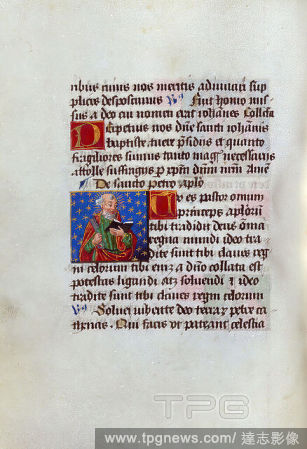 ribus cuius nos meritis adiuuari sup
plices deposcimus Fuit homo mis
sus a deo cui nomen erat iohanes Collecta
Perpetuis nos dne sancti iohanis
baptiste tuere psidus et quanto
fragiliores sumus tanto mag necessarijs
attolle suffragijs p xpm dnm nrm Ame
De sancto petro aplo
Tu es pastor ouium
princeps aplorum
tibi tradidit deus omnia
regna mundi ideo tra
dite sunt tibi claues reg
ni celorum tibi enim a dno collata est
potestas ligandi atq soluendi et ideo
tradite sunt tibi claues regni celorum
Solue iubente deo terrarum petre ca
thenas Qui facis ut pateant celestia
TPG
www.tpgnews.com/ 達志影像